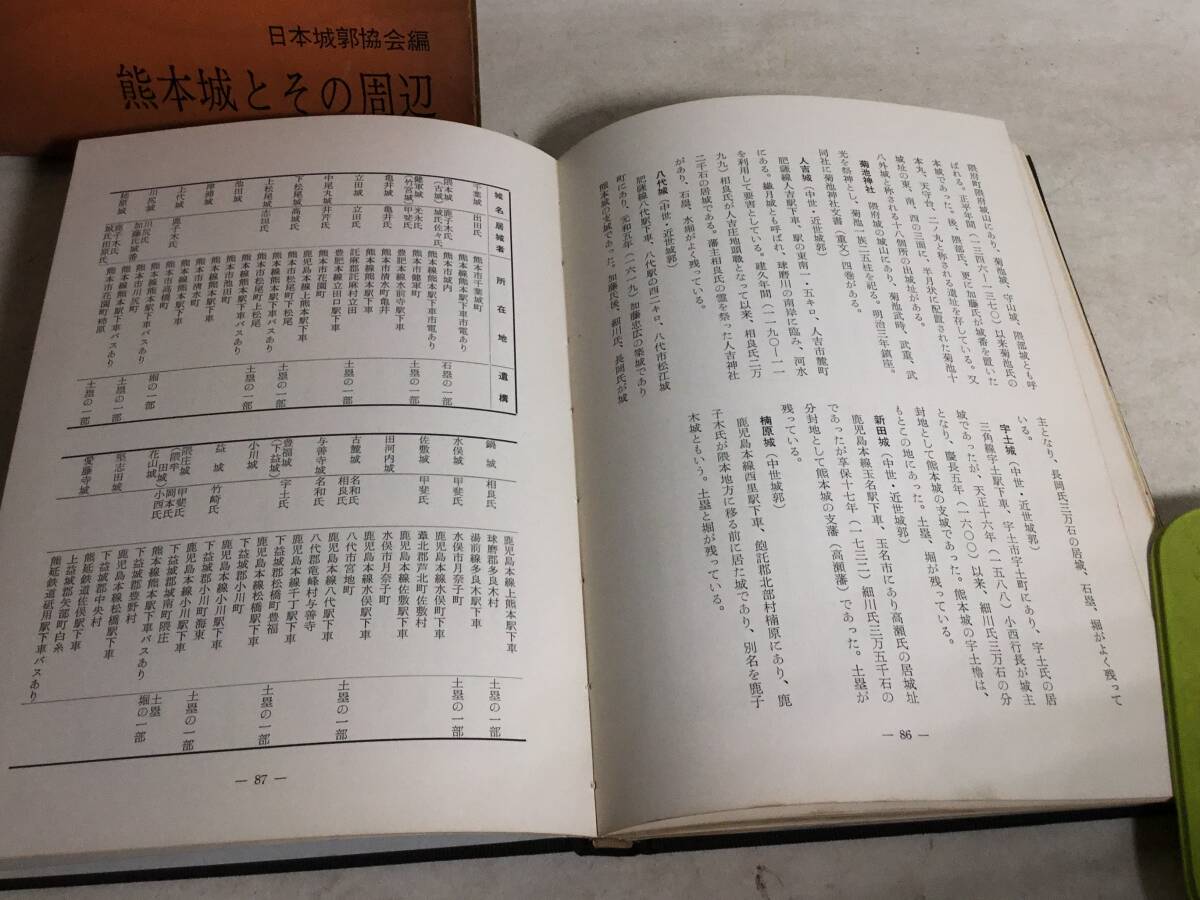 日本城郭協会編
熊本城とその周辺
隈府町隈府城山にあり、菊池城、守山城、隈部城とも呼
ばれる。正平年間(一三四六―一三七〇)以来菊池氏の
本城であった。後、隈部氏、更に加藤氏が城番を置いた
本丸、天守台、二ノ丸と称される遺址を存している。又
城址の東、南、四の三面に、半月状に配置された菊池十
八外城と称される十八個所の出城址がある。
菊池神社 隈府城の城山にあり、菊池武時、武重、武
光を祭神とし、菊池一族二五柱を祀る。明治三年鎮座。
同社に菊池神社文書(重文)四巻がある。
人吉城(中世・近世城郭)
肥薩線人吉駅下車、駅の東南一・五キロ、人吉市麓町
にある。繊月城とも呼ばれ、球磨川の南岸に臨み、河水
を利用して要害としている。建久年間(一一九〇―一一
九九)相良氏が人吉庄地頭職となって以来、相良氏二万
二千石の居城である。藩主相良氏の霊を祭った人吉神社
があり、石塁、水堀がよく残っている。
八代城(中世・近世城郭)
肥薩線八代駅下車、八代駅の四二キロ、八代市松江城
町にあり、元和五年(一六一九)加藤忠広の築城であり
熊本城の支城であった。加藤氏後、細川氏、長岡氏が城
主となり、長岡氏三万石の居城、石塁、堀がよく残って
いる。
宇土城(中世・近世城郭)
三角線宇土駅下車、宇土市宇土町にあり、宇土氏の居
城であったが、天正十六年(一五八八)小西行長が城主
となり、慶長五年(一六〇〇)以来、細川氏三万石の分
封地として熊本城の支城であった。熊本城の宇土櫓は、
もとこの地にあった。土塁、堀が残っている。
新田城(中世・近世城郭)
鹿児島本線玉名駅下車、玉名市にあり高瀬氏の居城址
であったが享保十七年(一七三二)細川氏三万五千石の
分封地として熊本城の支藩(高瀬藩)であった。土塁が
残っている。
楠原城(中世城郭)
鹿児島本線西里駅下車、飽託郡北部村楠原にあり、鹿
子木氏が隈本地方に移る前に居た城であり、別名を鹿子
木城ともいう。土塁と堀が残っている。
― 86 ―
城名 居城者 所在地 遺構
千葉城 出田氏 熊本市千葉城町
熊本線熊本駅下車市電あり
隈本城(古城) 鹿子木氏 城氏佐々氏 熊本市城内 石塁の一部
熊本線熊本駅下車市電あり
健軍城(竹宮城) 元木氏 甲斐氏 熊本市健軍町 土塁の一部
豊肥本線水前寺駅下車
亀井城 亀井氏 熊本市清水町亀井
熊本線熊本駅下車
立田城 立田氏 託麻郡託麻村立田 土塁の一部
豊肥本線立田口駅下車
中尾丸城 井芹氏 熊本市花園町
鹿児島本線上熊本駅下車
下松尾城 高城氏 熊本市松尾町下松尾 土塁の一部
熊本線熊本駅下車バスあり
上松尾城 志垣氏 熊本市松尾町上松尾 土塁の一部
熊本線熊本駅下車バスあり
池田城 熊本市池田町
熊本市清水町
上代城 鹿子木氏 熊本線熊本駅下車バスあり
熊本市高橋町 堀の一部
川尻城 川尻氏 加藤氏城番 熊本線熊本駅下車バスあり
熊本市川尻町 土塁の一部
楠原城 鹿子木氏 城氏田原氏 熊本線熊本駅下車バスあり
熊本市花園町柿原 土塁の一部
鍋城 相良氏 鹿児島本線上熊本駅下車
球磨郡多良木村 土塁の一部
湯前線多良木駅下車
水俣城 甲斐氏 水俣市月奈子町 土塁の一部
鹿児島本線水俣駅下車
佐敷城 甲斐氏 葦北郡芦北町佐敷村
鹿児島本線佐敷駅下車
田河内城 水俣市月奈子町
鹿児島本線水俣駅下車
古麓城 名和氏 相良氏 八代市宮地町 土塁の一部
鹿児島本線八代駅下車
与善寺城 名和氏 八代郡竜峰村与善寺
鹿児島本線千丁駅下車
豊福城(下益城) 宇土氏 下益城郡松橋町豊福 土塁の一部
鹿児島本線松橋駅下車
小川城 下益城郡小川町
鹿児島本線小川駅下車
益城 竹崎氏 下益城郡小川町海東 土塁の一部
鹿児島本線小川駅下車
隈庄城(隈牟田城) 甲斐氏 岡本氏 下益城郡城南町隈庄 土塁
熊本線熊本駅下車バスあり 堀の一部
花山城 小西氏 下益城郡豊野村
鹿児島本線松橋駅下車
堅志田城 下益城郡中央村
熊延鉄道佐俣駅下車
愛藤寺城 上益城郡矢部町白糸
熊延鉄道砥用駅下車バスあり
― 87 ―